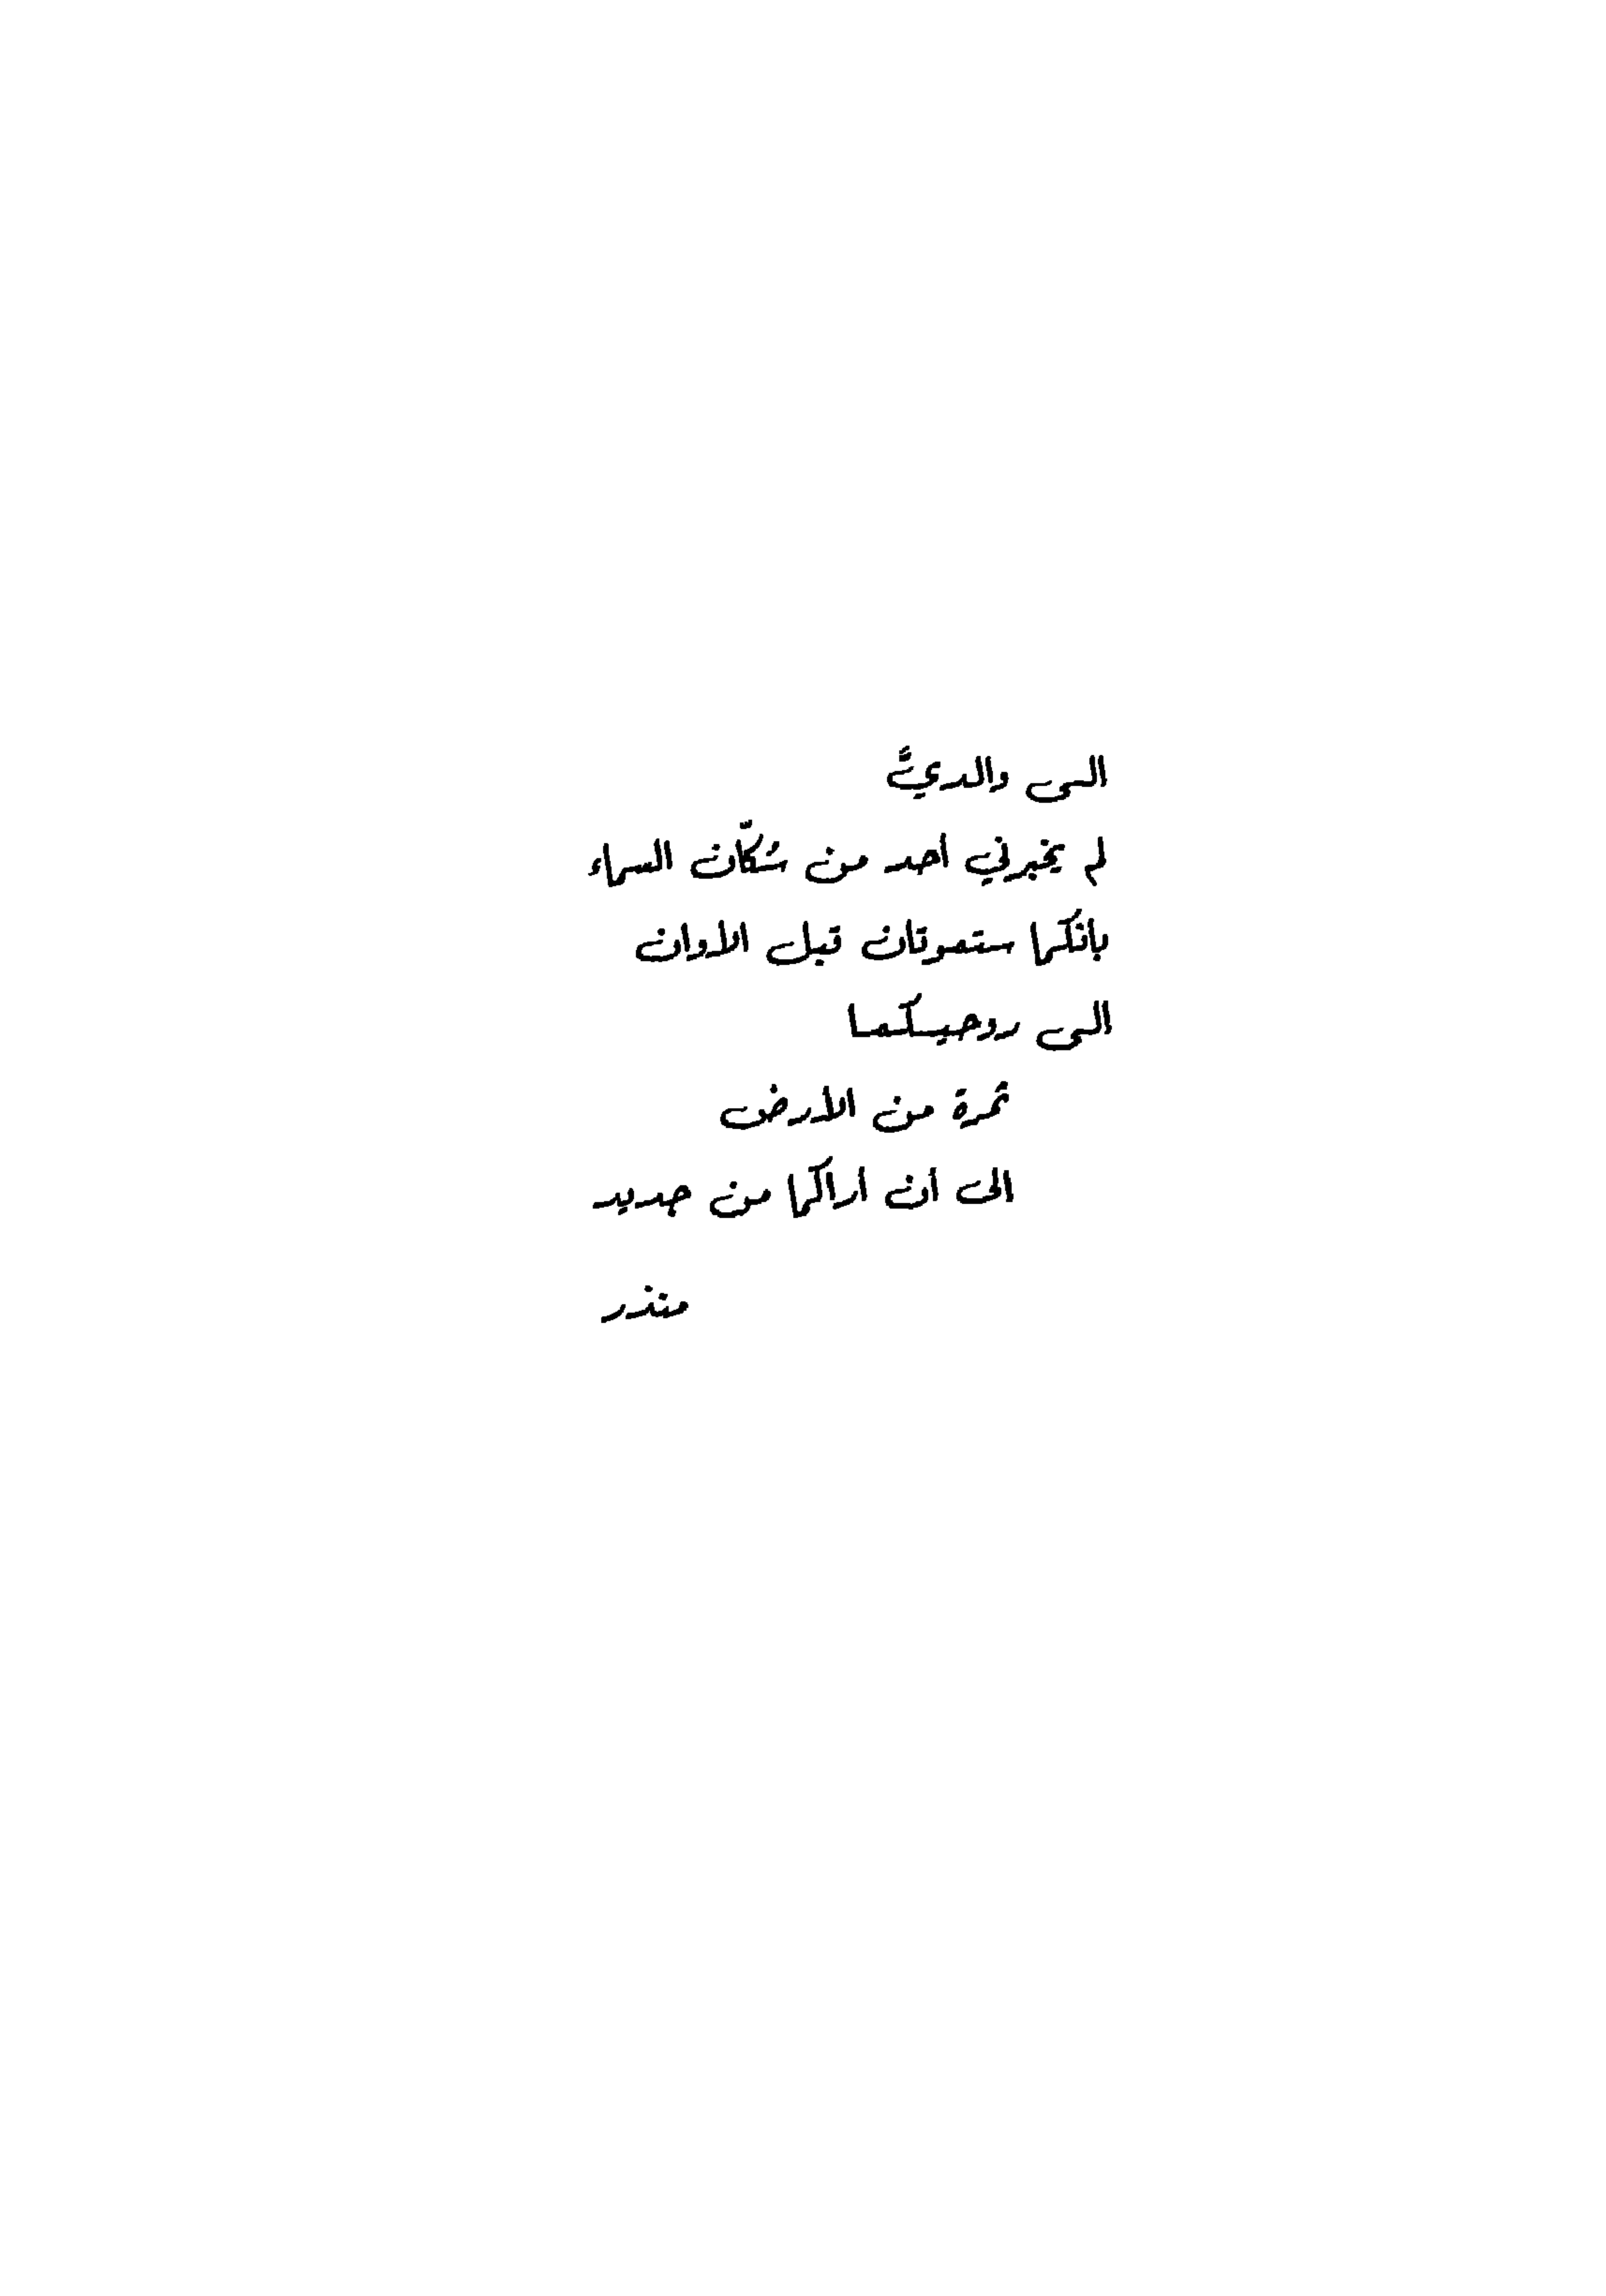 الى والديَّ
لم يخبرني أحد من سُكّان السماء
بأنكما ستموتان قبل الأوان
الى روحيكما
ثمرة من الأرض
الى أن أراكما من جديد
منذر